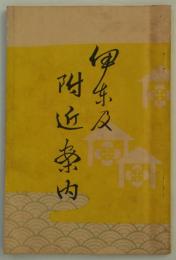 伊東及
附近案内